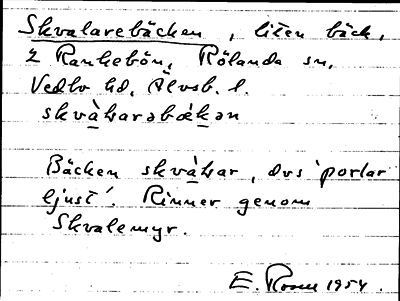 Skvalarebäcken, liten bäck,
i Rankebön, Rölanda sn,
Vedbo hd, Älvsb. l.
skvàlarəbækən
Bäcken skvàlar, dvs 'porlar
ljust'. Rinner genom
Skvalemyr.
E. Rosell 1954.